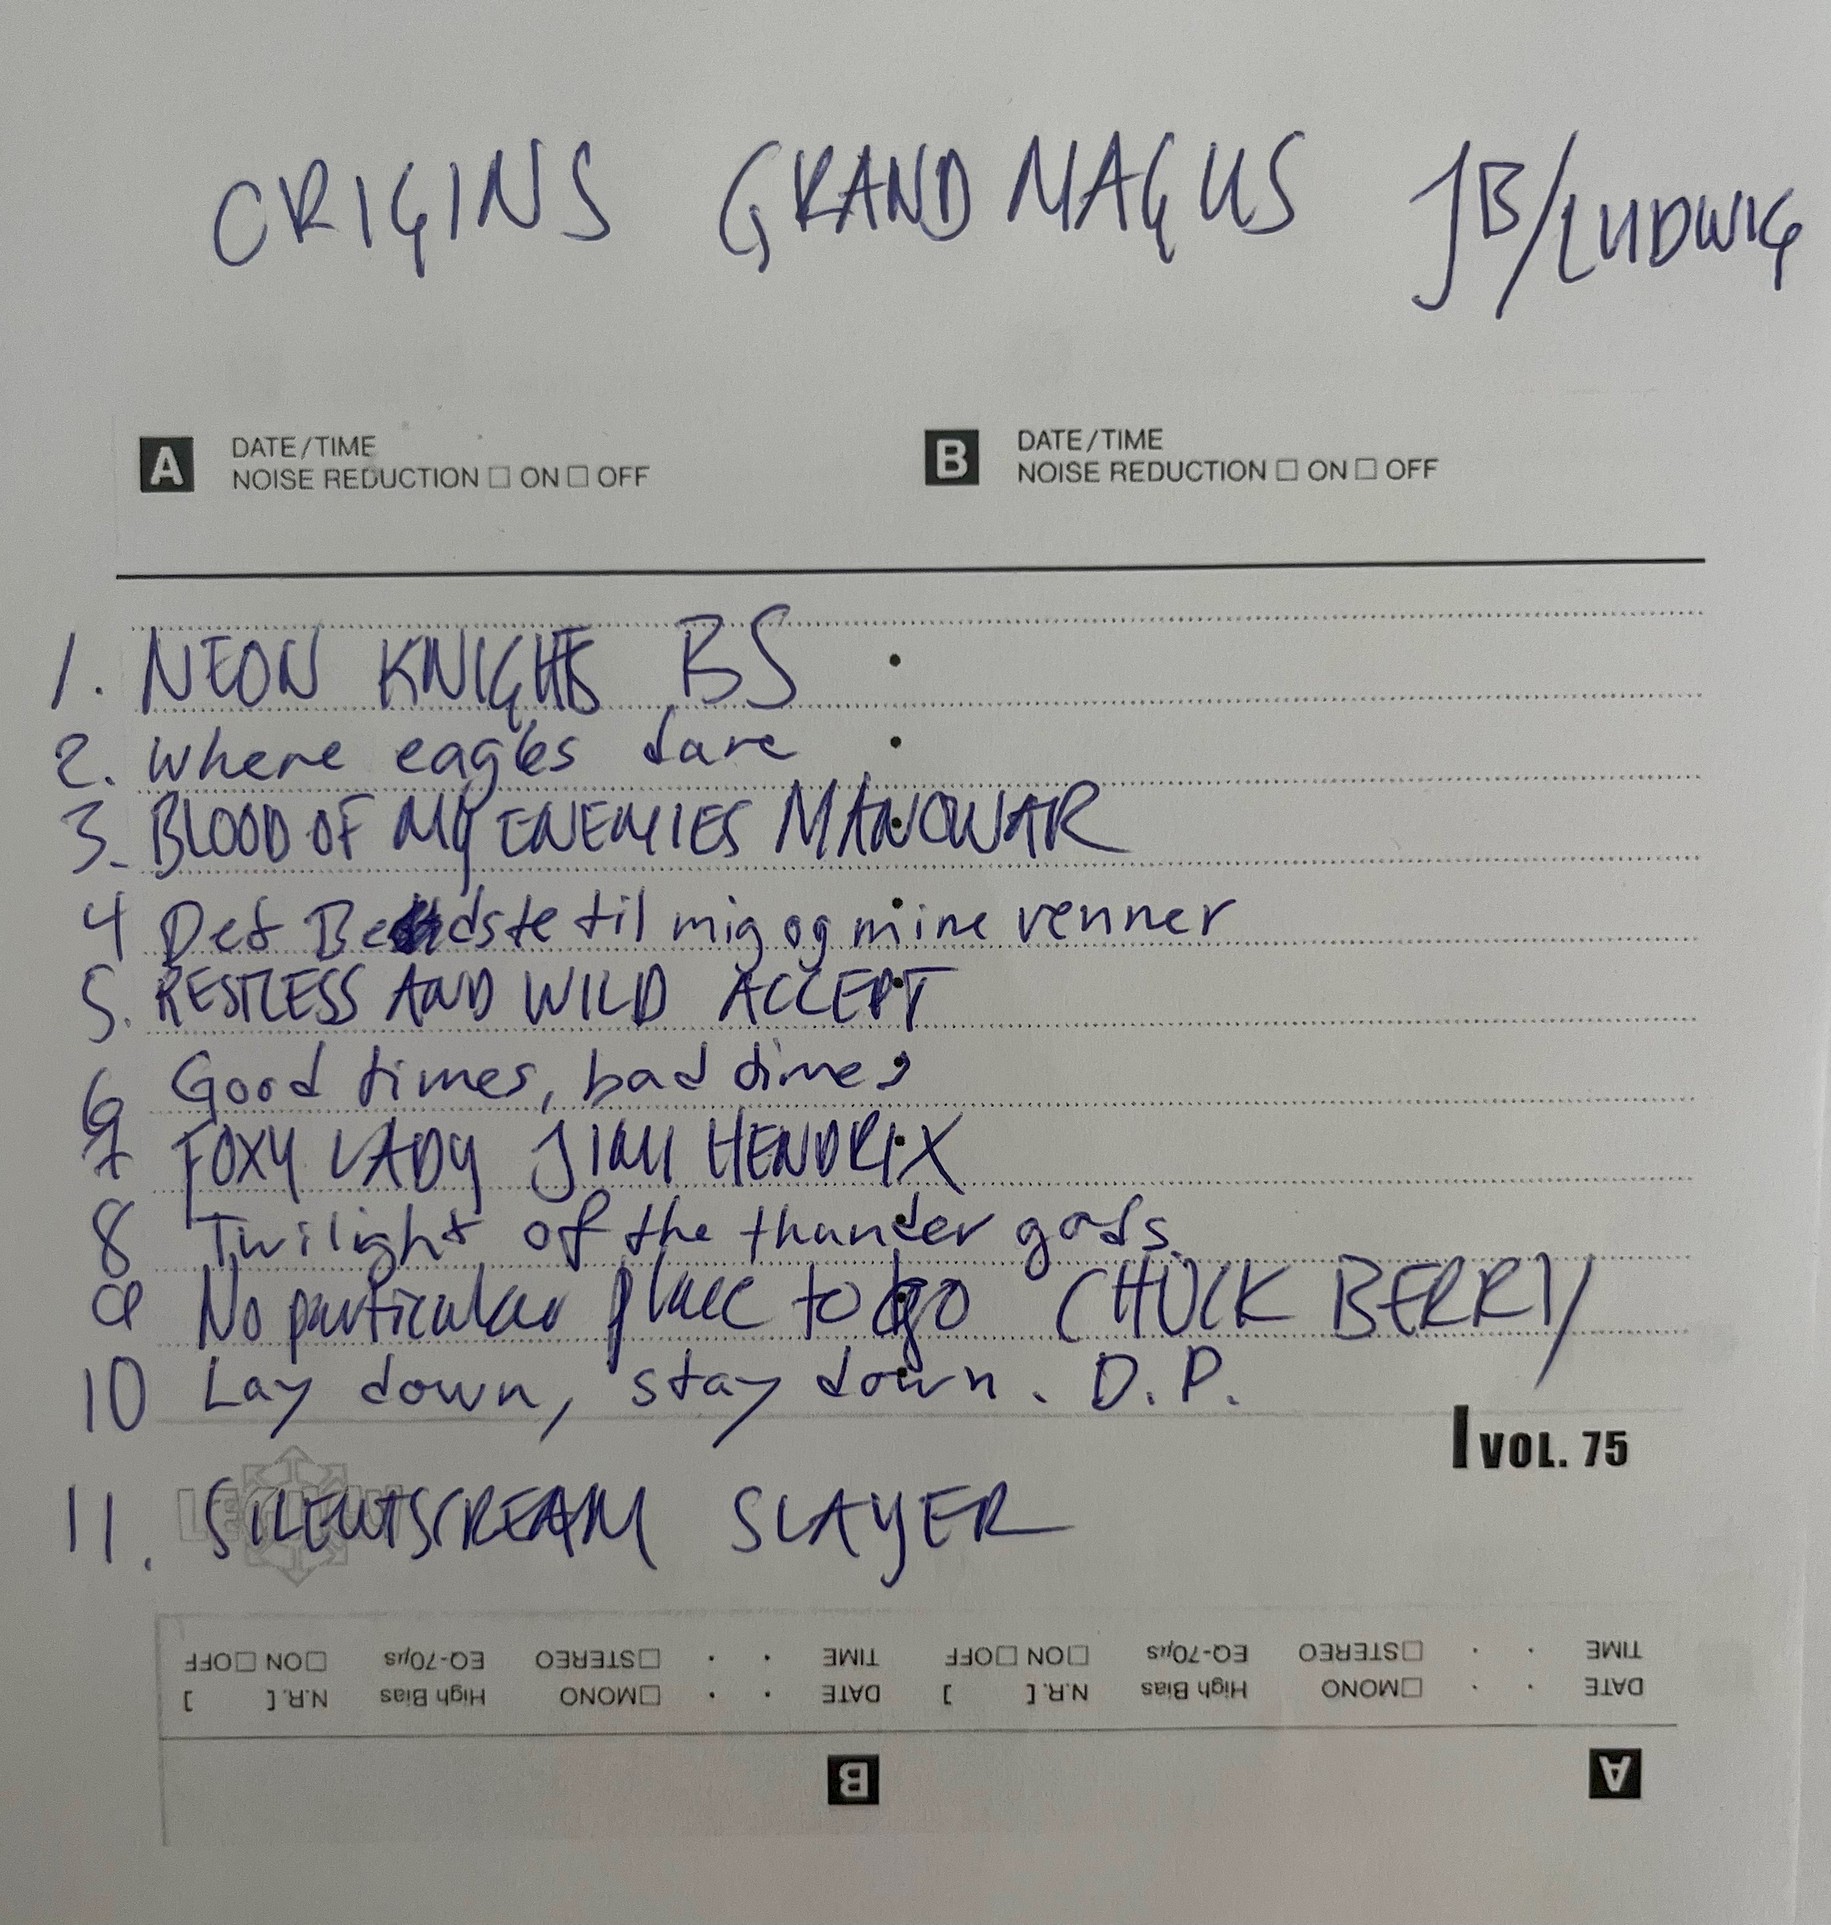 ORIGINS GRAND MAGUS JB/LUDWIG
A DATE/TIME
NOISE REDUCTION □ ON □ OFF
B DATE/TIME
NOISE REDUCTION □ ON □ OFF
1. NEON KNIGHTS BS
2. Where eagles dare
3. BLOOD OF MY ENEMIES MANOWAR
4 Det Bedste til mig og mine venner
5. RESTLESS AND WILD ACCEPT
6 Good times, bad times
7 FOXY LADY JIMI HENDRIX
8 Twilight of the thunder gods.
9 No particular place to go CHUCK BERRY
10 Lay down, stay down. D.P.
VOL. 75
11. SILENTSCREAM SLAYER
A
B
DATE . . □MONO High Bias N.R. [ ] DATE . . □MONO High Bias N.R. [ ]
TIME . . □STEREO EQ-70µs □ON □OFF TIME . . □STEREO EQ-70µs □ON □OFF